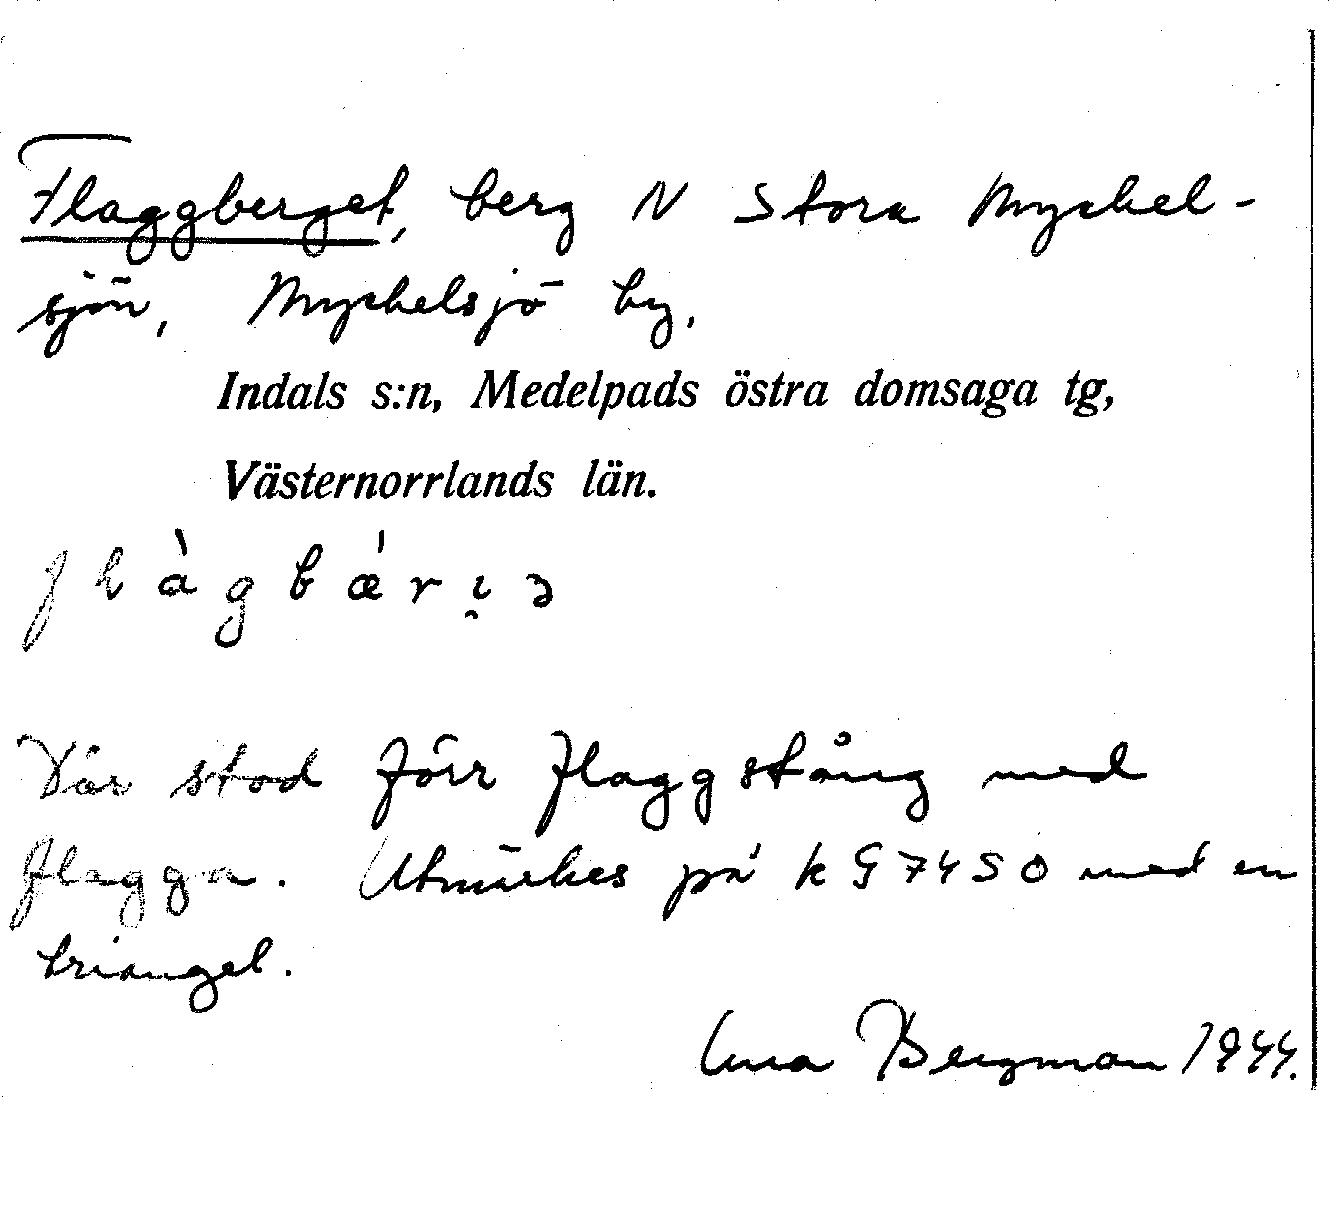 Flaggberget, berg N Stora Myckel-
sjön, Myckelsjö by.
Indals s:n, Medelpads östra domsaga tg,
Västernorrlands län.
flàgbǽrı̯ɔ
Där stod förr flaggstång med
flagga. Utmärkes på k G 7450 med en
triangel.
Bergman 1944.